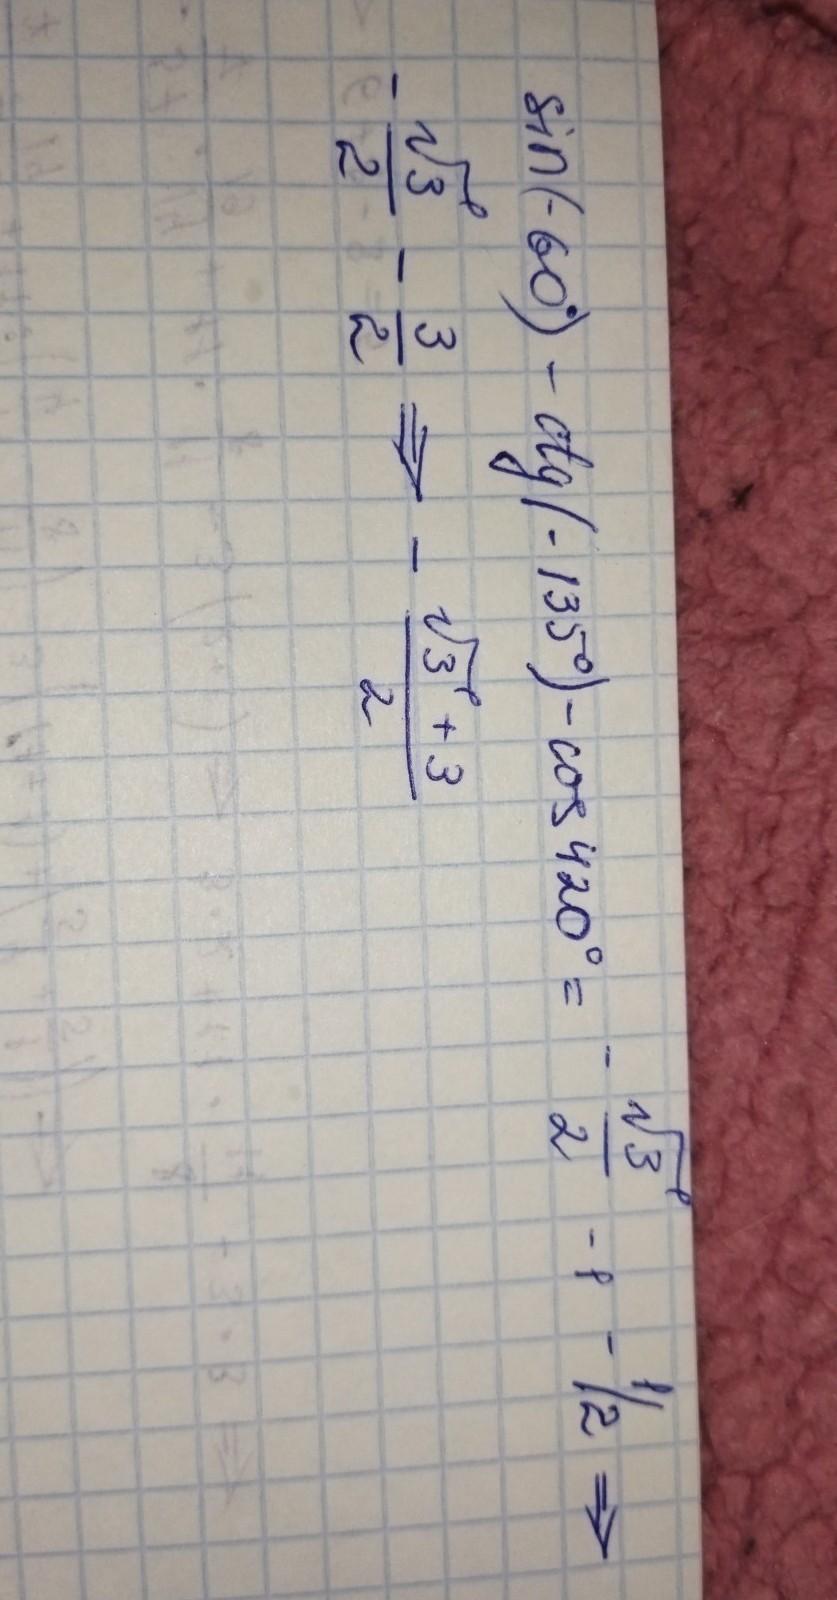 sin(-60°) - ctg(-135°) - cos 420° = - √3/2 - 1 - 1/2 ⇒
- √3/2 - 3/2 ⇒ - (√3 + 3)/2